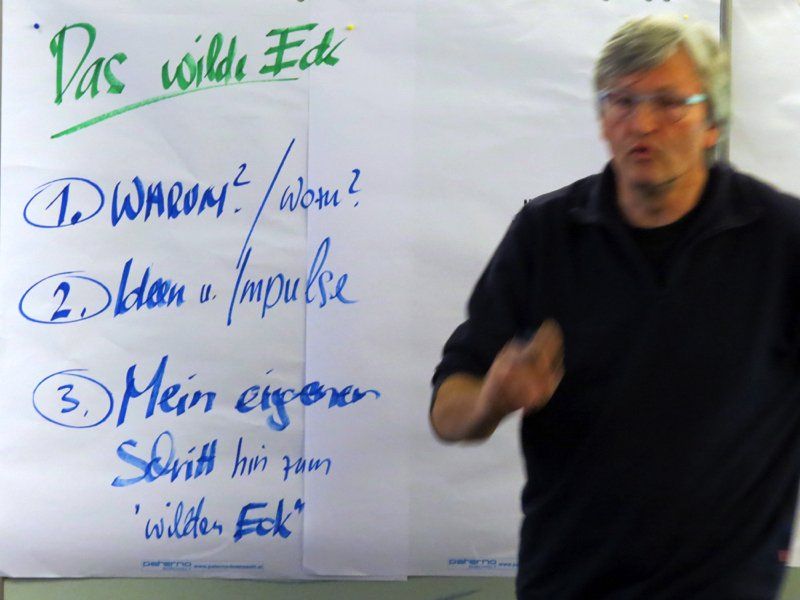 Das wilde Eck
1. WARUM? / Wozu?
2. Ideen u. Impulse
3. Mein eigener
Schritt hin zum
"wilden Eck"
paterno
paterno